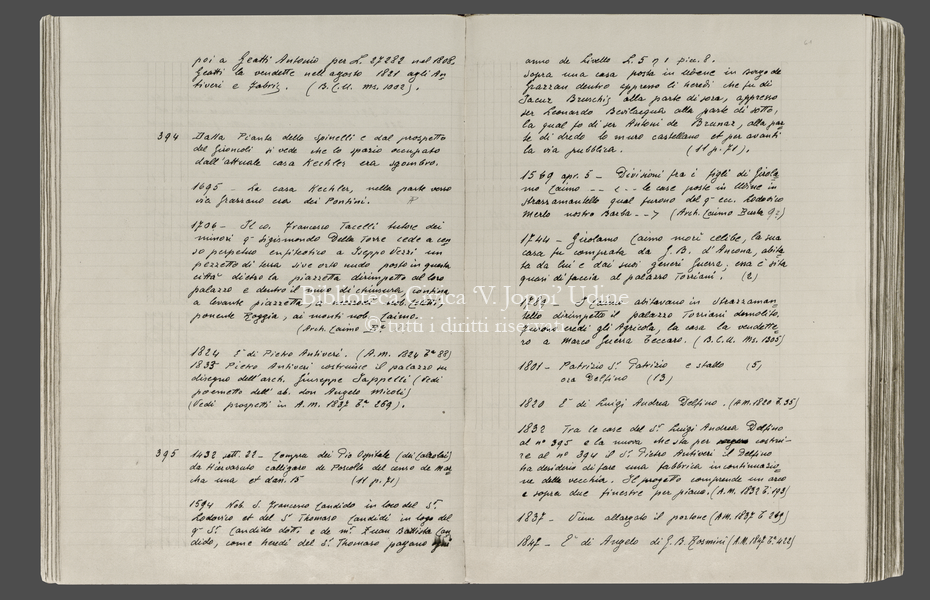 poi a Geatti Antonio per L. 27282 nel 1808.
Geatti la vendette nell'agosto 1821 agli An
tiveri e Fabris. (B.C.U. ms. 1002).
394 Dalla Pianta dello Spinelli e dal prospetto
del Gironcoli si vede che lo spazio occupato
dall'attuale casa Kechler era sgombro.
1695 - La casa Kechler, nella parte verso
via Grazzano era dei Pontini.
1706 - Il co. Francesco Tacelli tutore dei
minori qm Sigismondo Della Torre cede a cen
so perpetuo enfiteotico a Iseppo Verzi un
pezzetto di terra sive orto nudo posto in questa
città dietro la piazzetta dirimpetto al loro
palazzo e dentro il muro di chiusura confina
a levante piazzetta, a
ponente Roggia, ai monti nob. Caimo.
(Arch. Caimo
1824 E' di Pietro Antiveri. (A.M. 1824 Ta 88)
1833 Pietro Antiveri costruisce il palazzo su
disegno dell'arch. Giuseppe Jappelli (Vedi
poemetto dell'ab. don Angelo Micoli)
(Vedi prospetti in A.M. 1837 Ta 269).
395 1432 sett. 22 - Compra del Pio Ospitale (dei Calzolai)
da Hiervasuto calligaro de Porcilis del censo de Mar
cha una et dan. 15 (11 p. 71)
1594 Nob. S. Francesco Candido in loco del Sr
Lodovico et del Sr Thomaso Candidi in logo del
qm Sr Candido dotti e de mr Zuan Battista Can
dido, come heredi del Sr Thomaso pagano ogni
anno de livello L. 5 1 pic. 8.
sopra una casa posta in Udene in borgo de
Grazzan dentro appresso li heredi che fu di
Jacuz Bruschis alla parte di sora, appresso
ser Leonardo Bevilacqua alla parte di sotto,
la qual fo di ser Antoni de Brunaz, alla par
te di dredo le muro castellano et per avanti
la via pubblica. (11 p. 71).
1569 apr. 5 - Divisioni fra i figli di Girola
mo Caimo -- <-- le case poste in Udine in
Strazzamantello qual furono del qm ecc. Lodovico
Merlo nostro Barba --> (Arch. Caimo Busta 92)
1744 - Girolamo Caimo morì celibe, la sua
casa fu comprata da G.B. d'Ancona, abita
ta da lui e dai suoi generi Guerra. essa è sita
quasi di faccia al palazzo Torriani. (2)
I Caimo abitavano in Strazzaman
tello dirimpetto il palazzo Torriani demolito.
eredi gli Agricola, la casa la vendette
ro a Marco Guerra Beccaro. (B.C.U. Ms. 1305)
1801 - Patrizio Sr Patrizio e stallo (5)
ora Delfino (13)
1820 E' di Luigi Andrea Delfino. (A.M. 1820 T. 35)
1832 Tra le case del Sr Luigi Andrea Delfino
al no 395 e la nuova che sta per costrui-
re al no 394 il Sr Pietro Antiveri il Delfino
ha desiderio di fare una fabbrica in continuazio
ne della vecchia. Il progetto comprende un arco
e sopra due finestre per piano. (A.M. 1832 T. 193)
1837 - Viene allargato il portone (A.M. 1837 T. 269)
1847 - E' di Angelo di G.B. Rosmini (A.M. 1847 Ta 422)
Biblioteca Civica 'V. Joppi' Udine
© tutti i diritti riservati